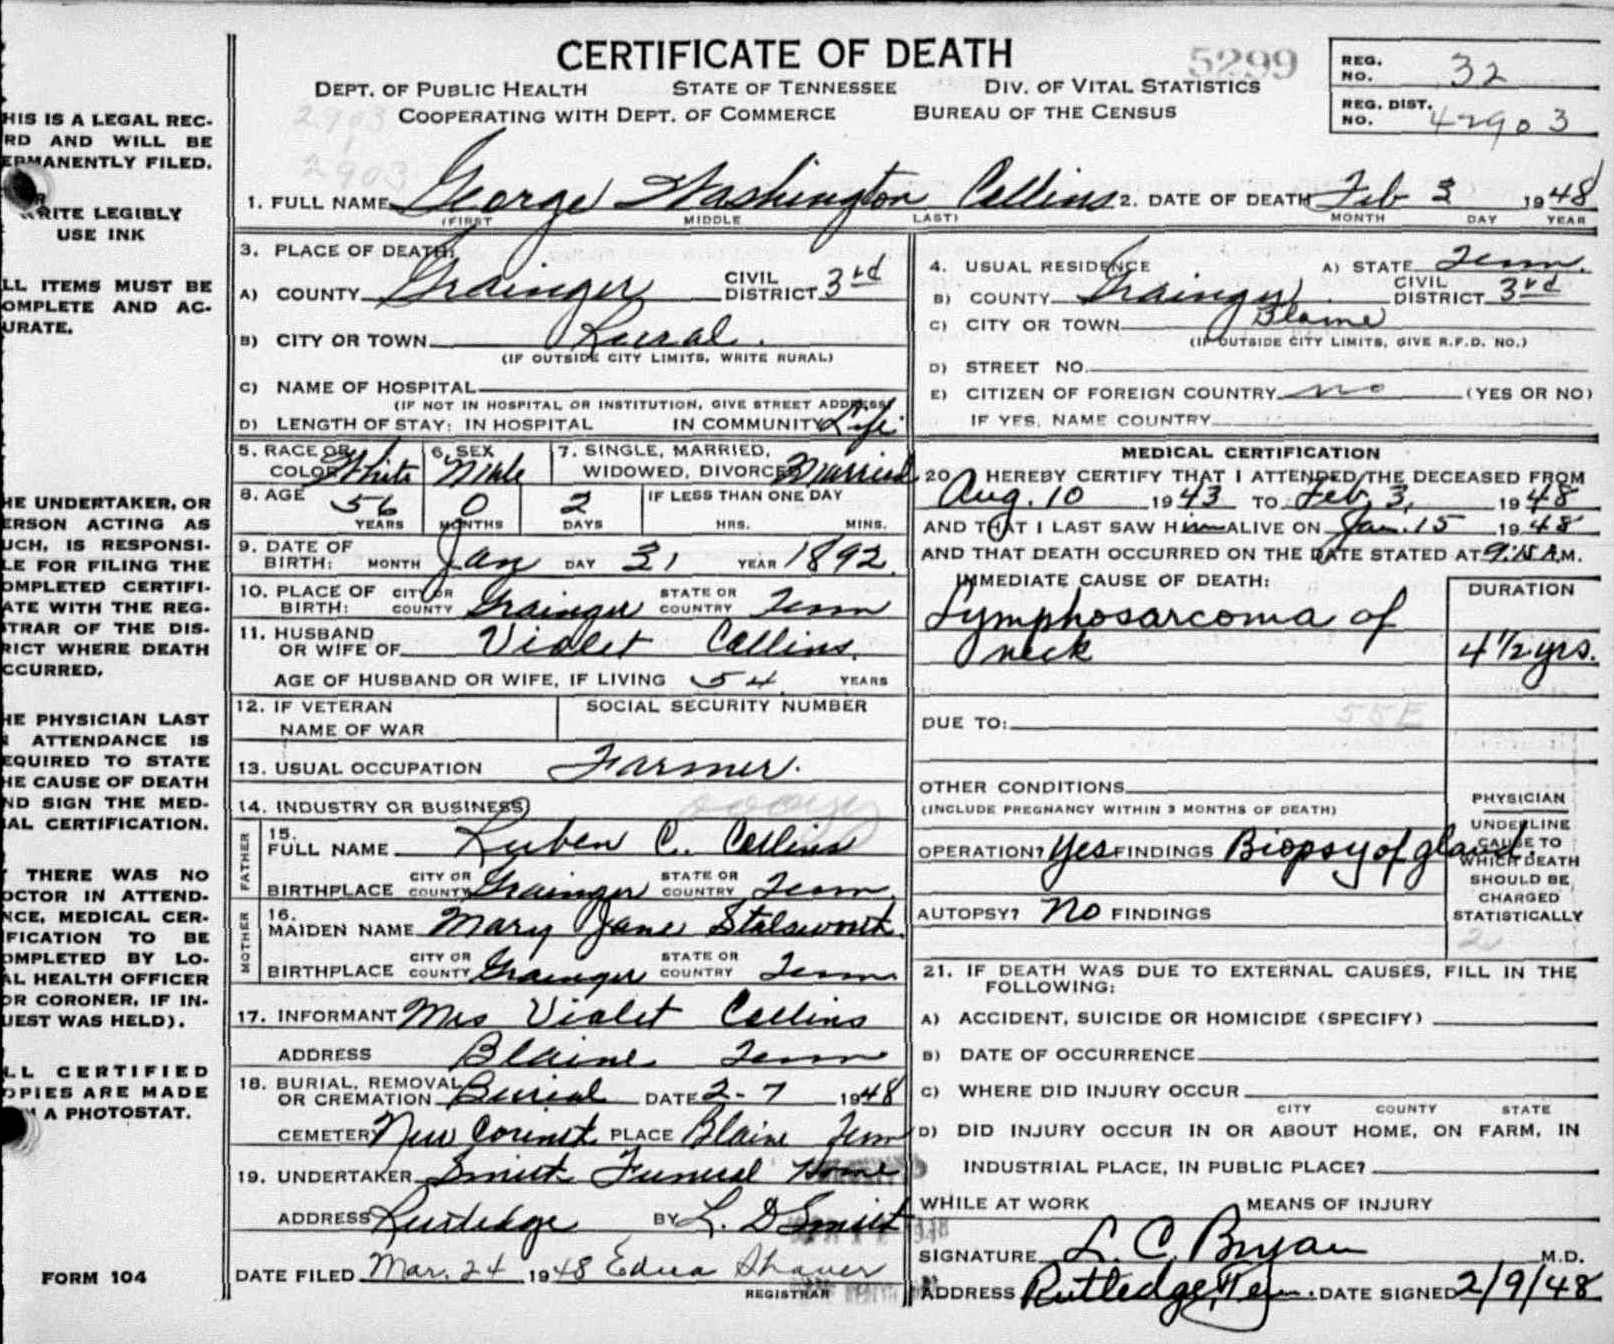 CERTIFICATE OF DEATH
5299
DEPT. OF PUBLIC HEALTH STATE OF TENNESSEE DIV. OF VITAL STATISTICS
COOPERATING WITH DEPT. OF COMMERCE BUREAU OF THE CENSUS
REG. NO. 32
REG. DIST. NO. 42903
2903
2903
1. FULL NAME George Washington Collins 2. DATE OF DEATH Feb 3 1948
(FIRST MIDDLE LAST) MONTH DAY YEAR
HIS IS A LEGAL REC-
RD AND WILL BE
ERMANENTLY FILED.
WRITE LEGIBLY
USE INK
LL ITEMS MUST BE
OMPLETE AND AC-
URATE.
HE UNDERTAKER, OR
ERSON ACTING AS
UCH, IS RESPONSI-
LE FOR FILING THE
OMPLETED CERTIFI-
ATE WITH THE REG-
TRAR OF THE DIS-
RICT WHERE DEATH
CCURRED.
HE PHYSICIAN LAST
ATTENDANCE IS
EQUIRED TO STATE
HE CAUSE OF DEATH
ND SIGN THE MED-
IAL CERTIFICATION.
THERE WAS NO
OCTOR IN ATTEND-
NCE, MEDICAL CER-
FICATION TO BE
OMPLETED BY LO-
AL HEALTH OFFICER
OR CORONER, IF IN-
UEST WAS HELD).
LL CERTIFIED
OPIES ARE MADE
A PHOTOSTAT.
FORM 104
3. PLACE OF DEATH:
A) COUNTY Grainger CIVIL DISTRICT 3rd
B) CITY OR TOWN Rural.
(IF OUTSIDE CITY LIMITS, WRITE RURAL)
C) NAME OF HOSPITAL
(IF NOT IN HOSPITAL OR INSTITUTION, GIVE STREET ADDRESS)
D) LENGTH OF STAY: IN HOSPITAL IN COMMUNITY Life
5. RACE OR COLOR White 6. SEX Male 7. SINGLE, MARRIED, WIDOWED, DIVORCED Married
8. AGE 56 YEARS 0 MONTHS 2 DAYS IF LESS THAN ONE DAY HRS. MINS.
9. DATE OF BIRTH: MONTH Jan DAY 31 YEAR 1892.
10. PLACE OF BIRTH: CITY OR COUNTY Grainger STATE OR COUNTRY Tenn
11. HUSBAND OR WIFE OF Violet Collins.
AGE OF HUSBAND OR WIFE, IF LIVING 54 YEARS
12. IF VETERAN NAME OF WAR SOCIAL SECURITY NUMBER
13. USUAL OCCUPATION Farmer.
14. INDUSTRY OR BUSINESS
FATHER
15. FULL NAME Ruben C. Collins
BIRTHPLACE CITY OR COUNTY Grainger STATE OR COUNTRY Tenn
MOTHER
16. MAIDEN NAME Mary Jane Stalsworth.
BIRTHPLACE CITY OR COUNTY Grainger STATE OR COUNTRY Tenn.
17. INFORMANT Mrs Violet Collins
ADDRESS Blaine Tenn
18. BURIAL, REMOVAL OR CREMATION Burial DATE 2-7 1948
CEMETERY New Corinth PLACE Blaine Tenn
19. UNDERTAKER Smith Funeral Home
ADDRESS Rutledge BY L. D Smith
DATE FILED Mar. 24 1948 Edna Shaver
REGISTRAR
4. USUAL RESIDENCE A) STATE Tenn.
B) COUNTY Grainger CIVIL DISTRICT 3rd
C) CITY OR TOWN Blaine
(IF OUTSIDE CITY LIMITS, GIVE R.F.D. NO.)
D) STREET NO.
E) CITIZEN OF FOREIGN COUNTRY no (YES OR NO)
IF YES, NAME COUNTRY
MEDICAL CERTIFICATION
20. I HEREBY CERTIFY THAT I ATTENDED THE DECEASED FROM
Aug. 10 1943 TO Feb. 3, 1948
AND THAT I LAST SAW Him ALIVE ON Jan. 15 1948
AND THAT DEATH OCCURRED ON THE DATE STATED AT 9:15 A.M.
IMMEDIATE CAUSE OF DEATH: DURATION
Lymphosarcoma of
neck 4 1/2 yrs.
55E
DUE TO:
OTHER CONDITIONS
(INCLUDE PREGNANCY WITHIN 3 MONTHS OF DEATH)
OPERATION? Yes FINDINGS Biopsy of gland.
AUTOPSY? No FINDINGS
PHYSICIAN
UNDERLINE
CAUSE TO
WHICH DEATH
SHOULD BE
CHARGED
STATISTICALLY
2
21. IF DEATH WAS DUE TO EXTERNAL CAUSES, FILL IN THE
FOLLOWING:
A) ACCIDENT, SUICIDE OR HOMICIDE (SPECIFY)
B) DATE OF OCCURRENCE
C) WHERE DID INJURY OCCUR
CITY COUNTY STATE
D) DID INJURY OCCUR IN OR ABOUT HOME, ON FARM, IN
INDUSTRIAL PLACE, IN PUBLIC PLACE?
WHILE AT WORK MEANS OF INJURY
SIGNATURE L. C. Bryan M.D.
ADDRESS Rutledge, Tenn. DATE SIGNED 2/9/48